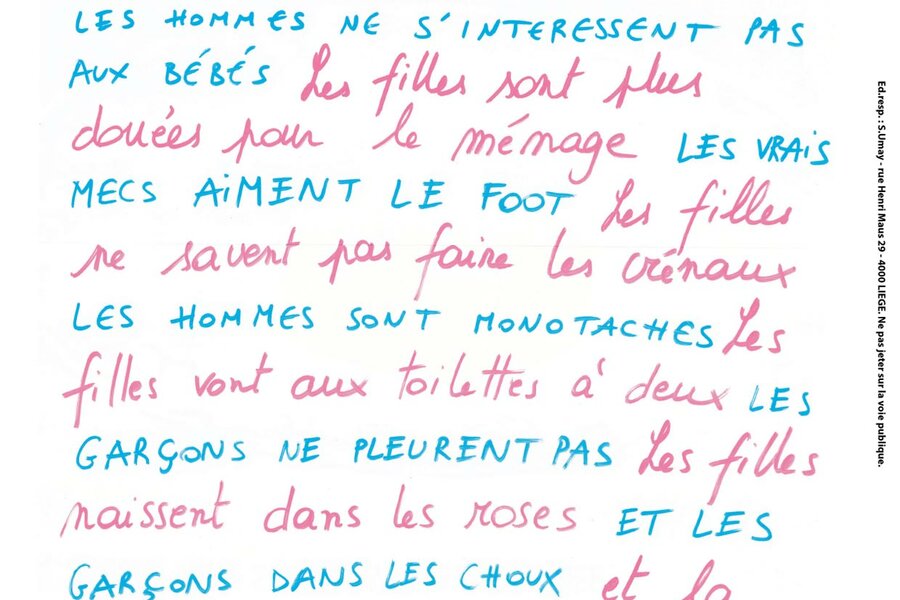 LES HOMMES NE S'INTERESSENT PAS
AUX BÉBÉS Les filles sont plus
douées pour le ménage LES VRAIS
MECS AiMENT LE FOOT Les filles
ne savent pas faire les crénaux
LES HOMMES SONT MONOTACHES Les
filles vont aux toilettes à deux LES
GARÇONS NE PLEURENT PAS Les filles
naissent dans les roses ET LES
GARÇONS DANS LES CHOUX et la
Ed.resp. : S.Umay - rue Henri Maus 29 - 4000 LIEGE. Ne pas jeter sur la voie publique.